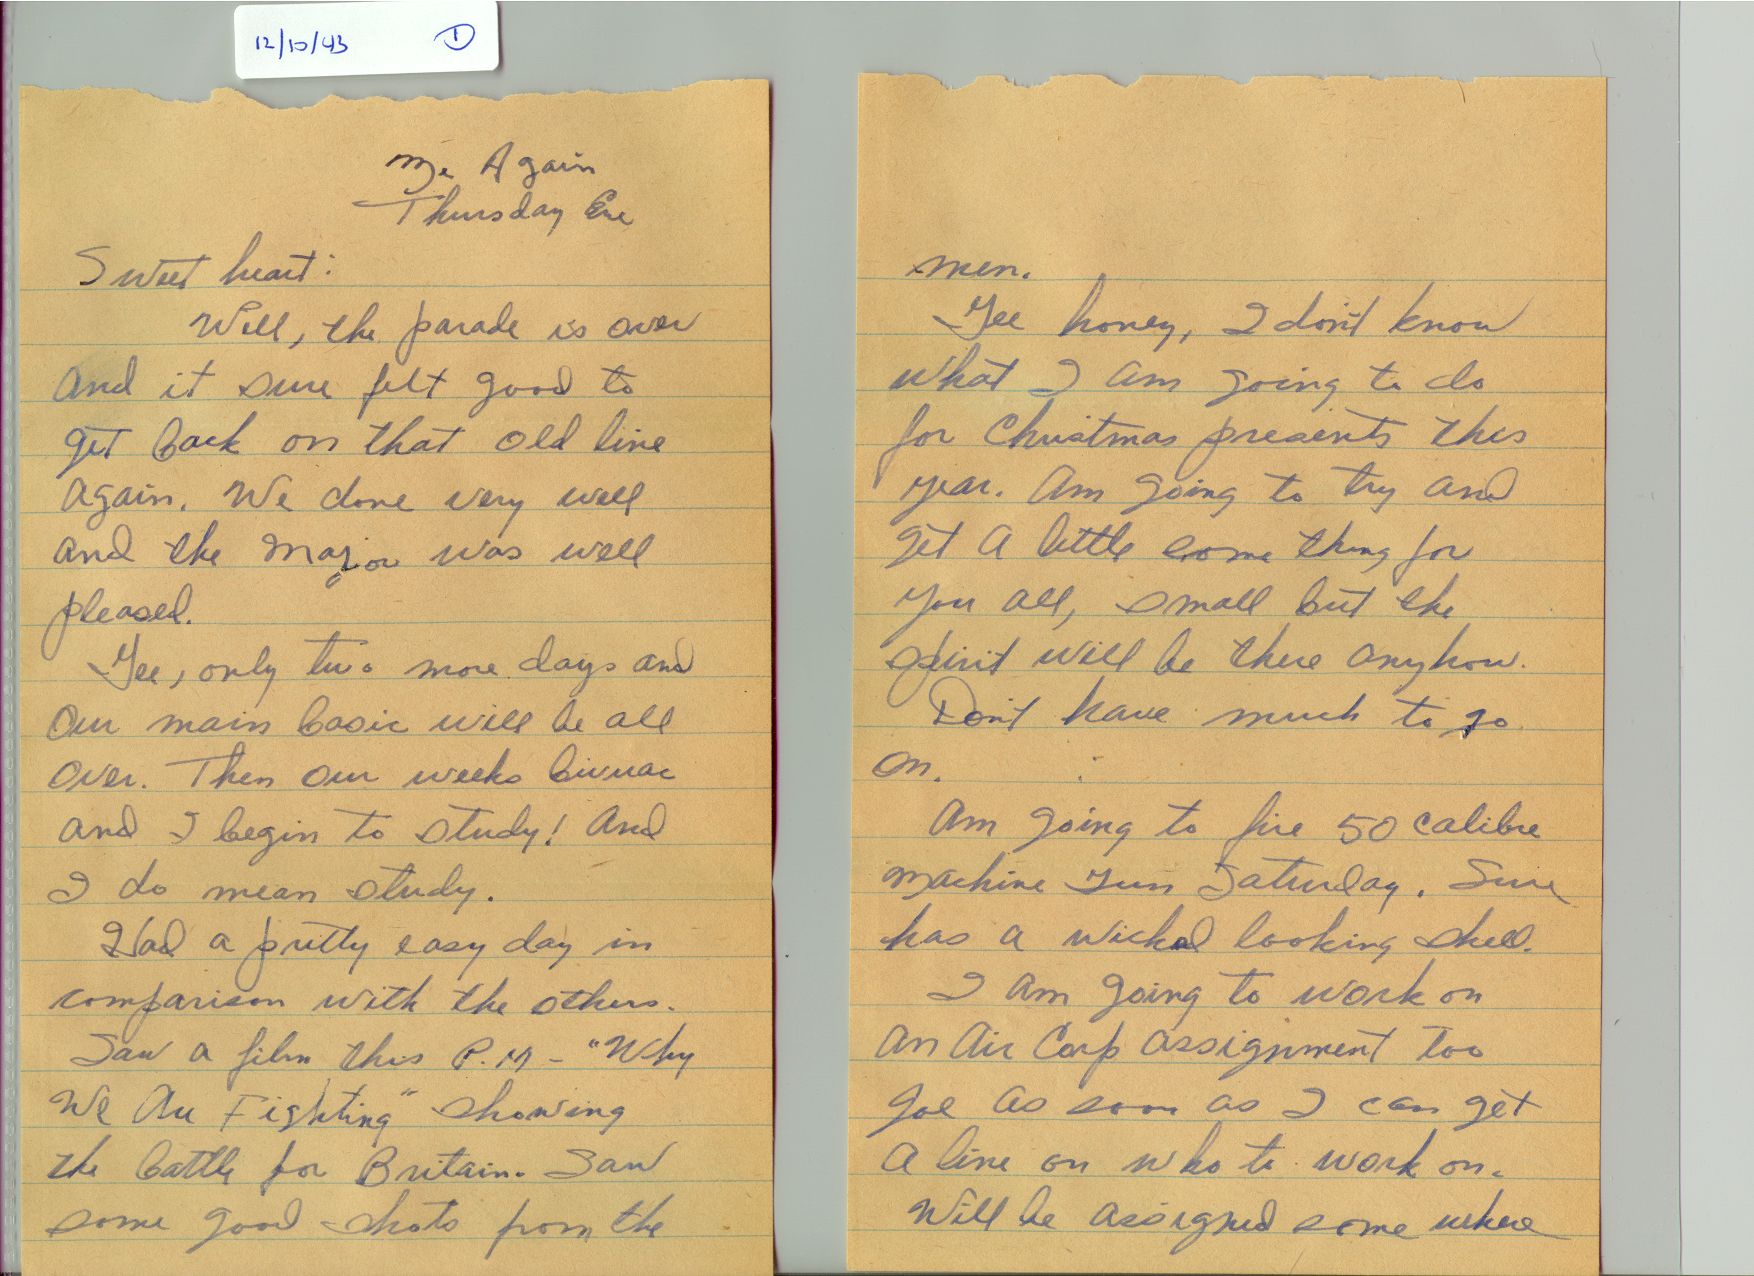 12/10/43 1
Me Again
Thursday Eve
Sweet heart:
Well, the parade is over
and it sure felt good to
get back on that old line
again. We done very well
and the Major was well
pleased.
Gee, only two more days and
our main basic will be all
over. Then our weeks bivuac
and I begin to study! And
I do mean study.
Had a pretty easy day in
comparison with the others.
Saw a film this P.M - "Why
We Are Fighting" showing
the battle for Britain. Saw
some good shots from the
men.
Gee honey, I don't know
what I am going to do
for Christmas presents this
year. Am going to try and
get a little some thing for
you all, small but the
spirit will be there anyhow.
Don't have much to go
on.
Am going to fire 50 calibre
machine gun Saturday. Sure
has a wicked looking shell.
I am going to work on
an Air Corp assignment too
Joe as soon as I can get
a line on who to work on.
Will be assigned some where